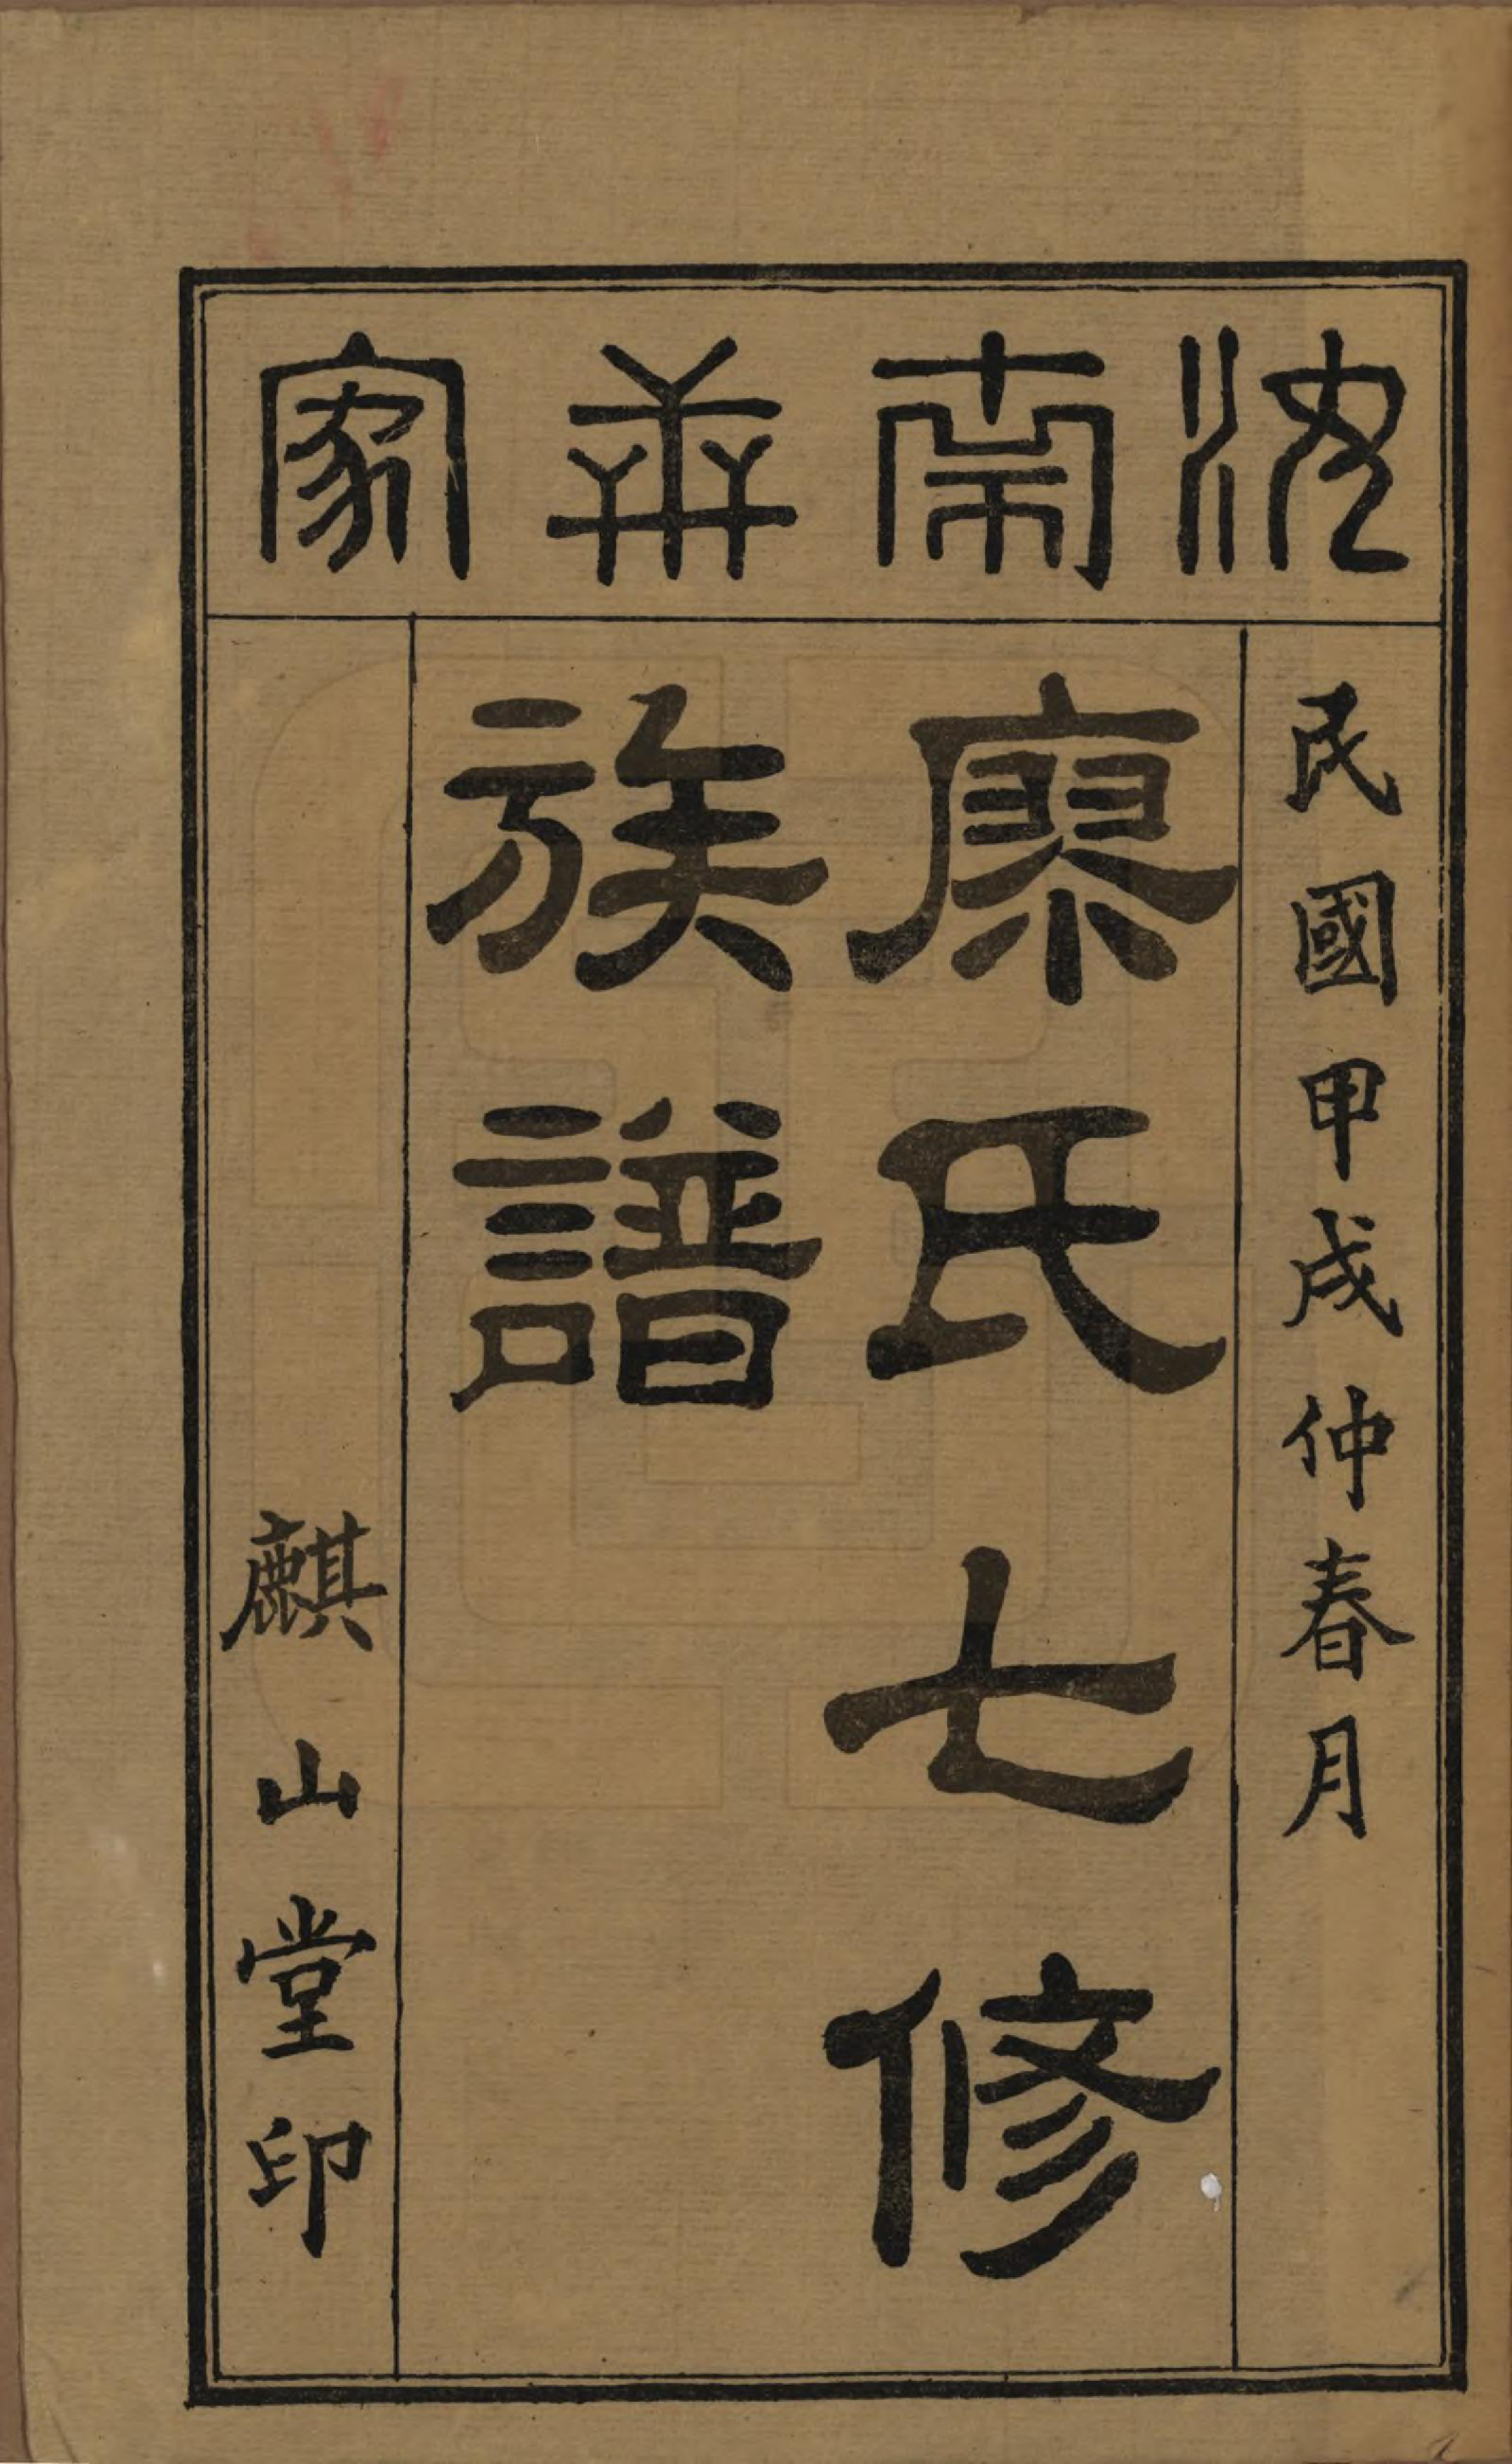 沈南世家
民國甲戌仲春月
廖氏七修
族譜
麒山堂印